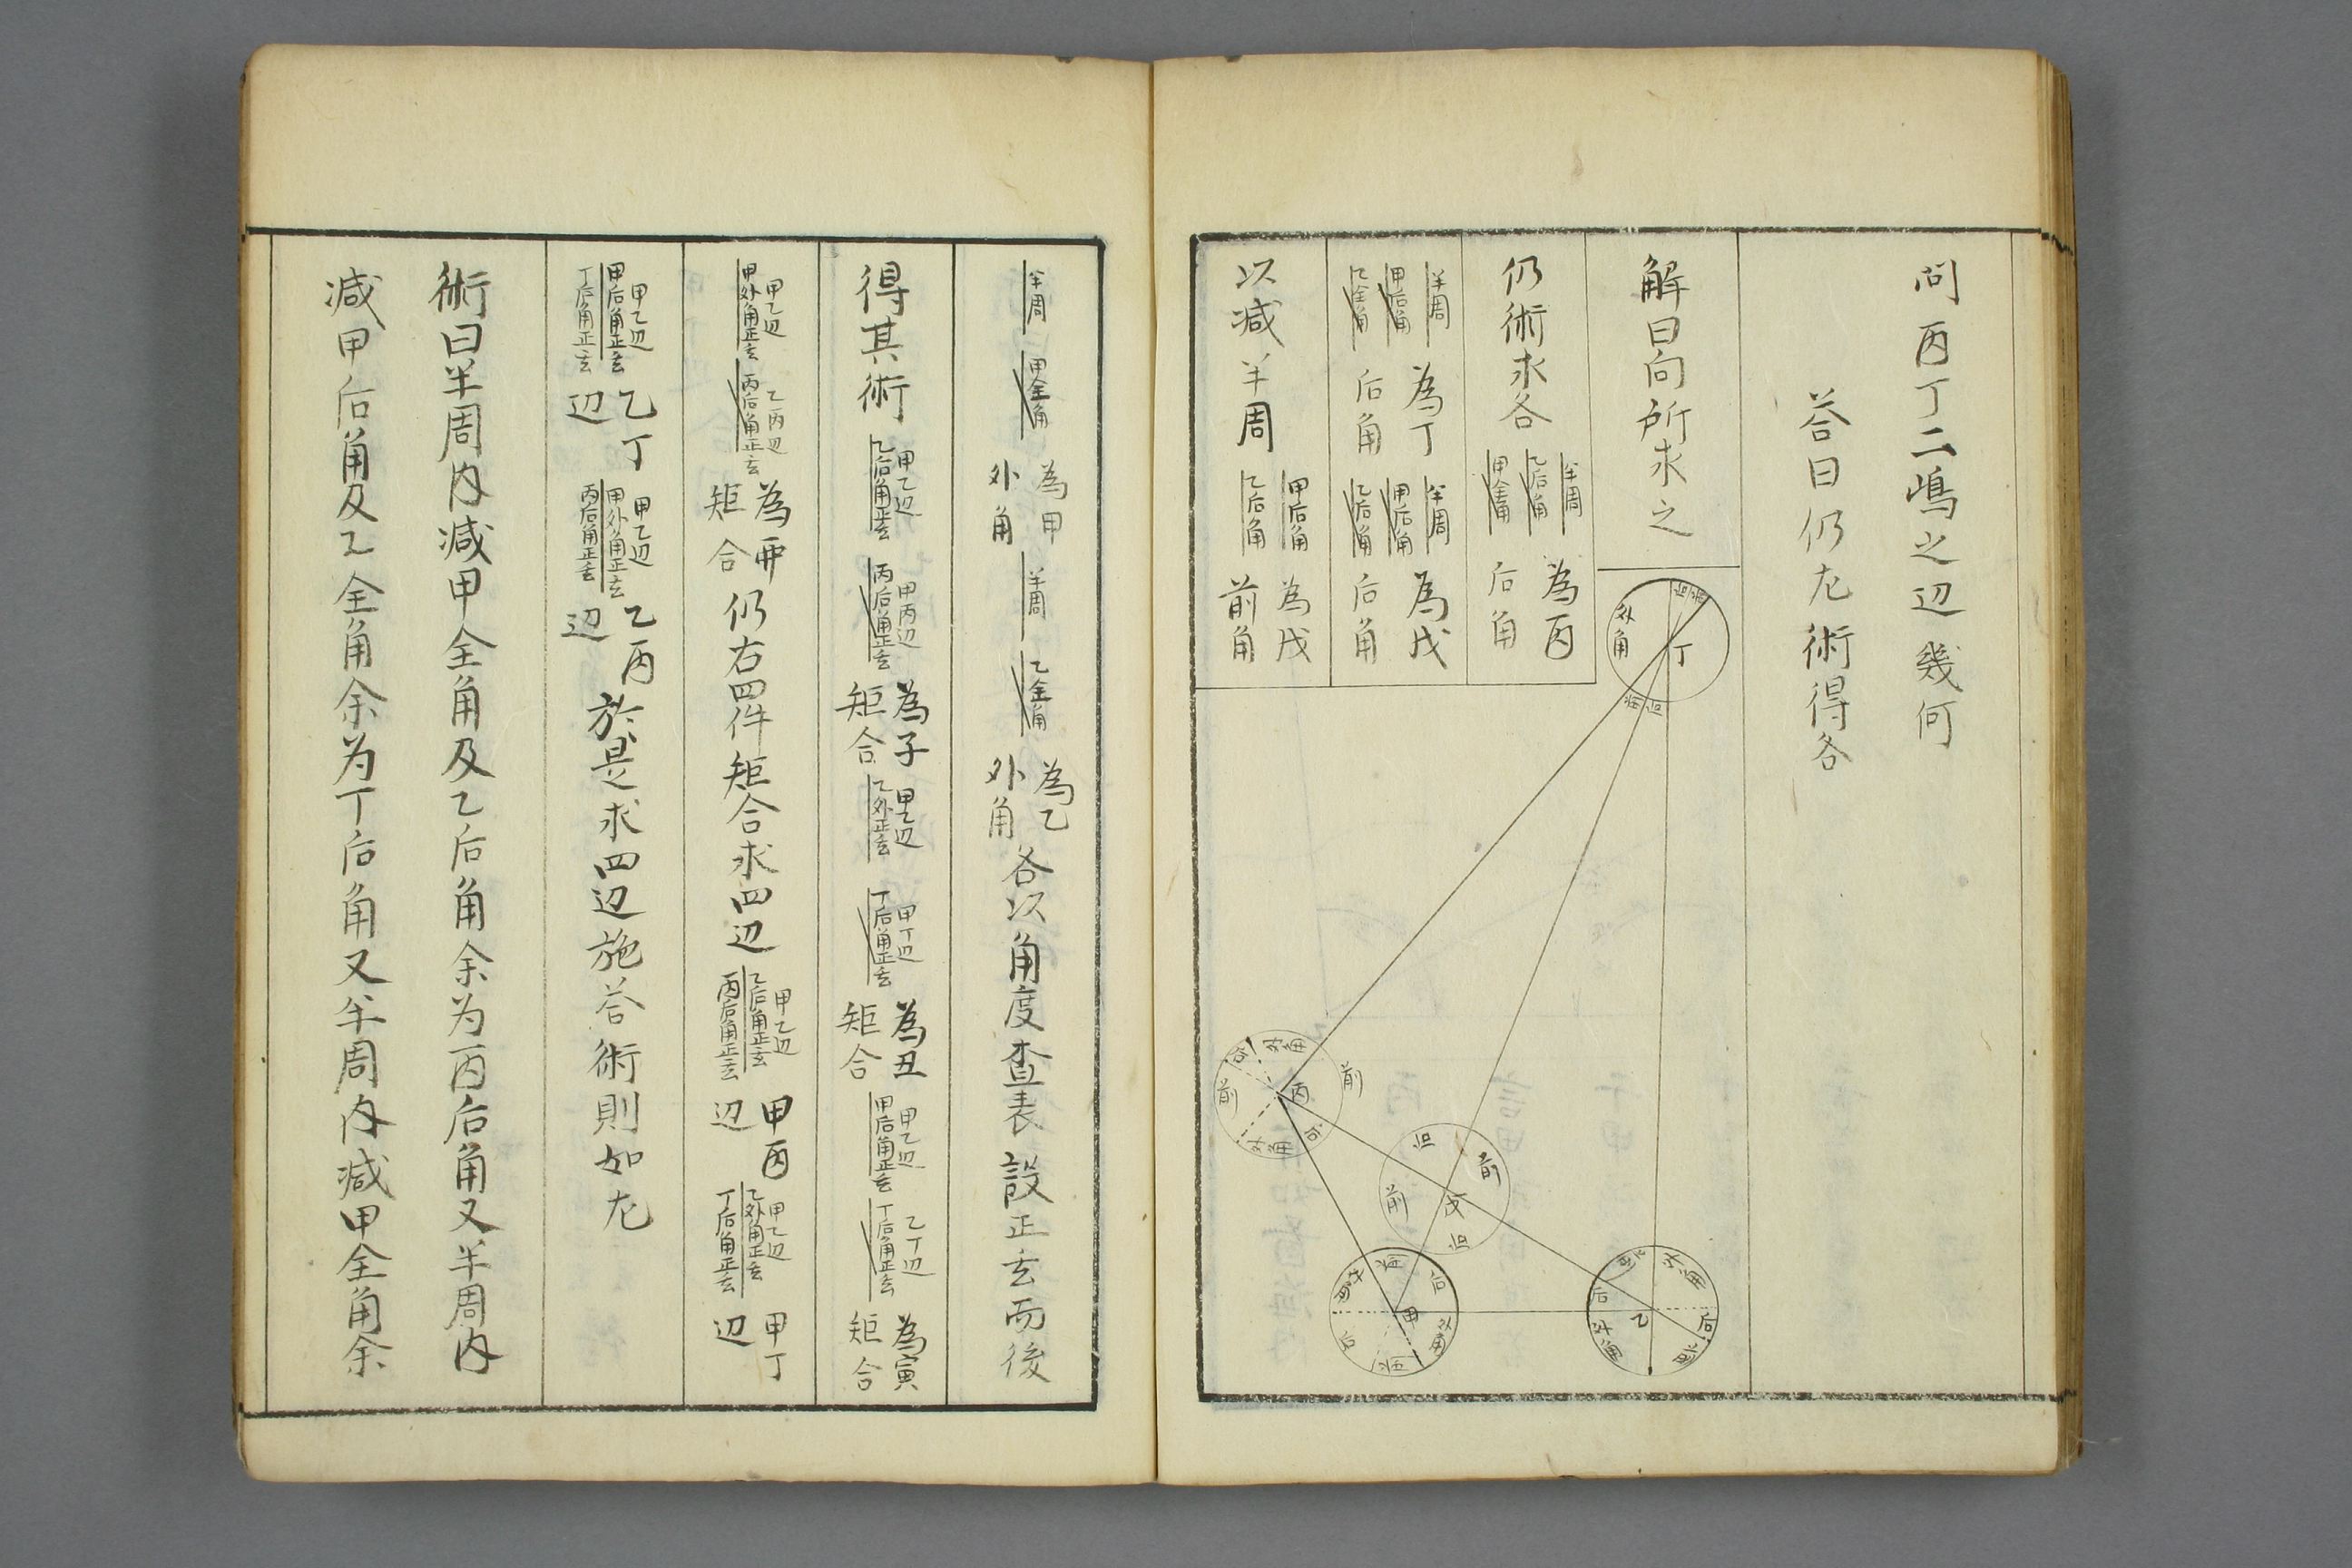 問丙丁二嶋之辺幾何
荅曰仍左術得各
解曰向所求之
仍術求各
半周
乙后角
甲全角
為丙
后角
半周
甲后角
乙全角
為丁
后角
半周
甲后角
乙后角
為戊
后角
以减半周
甲后角
乙后角
為戊
前角
丁
外角
丙
前
前
外角
外角
戊
前
前
后
后
甲
后
后
外角
外角
乙
后
后
外角
外角
半周
甲全角
為甲
外角
半周
乙全角
為乙
外角
各以角度査表設正玄而後
得其術
甲乙辺
乙后角正玄
甲丙辺
丙后角正玄
為子
矩合
甲乙辺
乙外正玄
甲丁辺
丁后角正玄
為丑
矩合
甲乙辺
甲后角正玄
乙丁辺
丁后角正玄
為寅
矩合
甲乙辺
甲外角正玄
乙丙辺
丙后角正玄
為夘
矩合
仍右四件矩合求四辺
甲乙辺
乙后角正玄
丙后角正玄
甲丙
辺
甲乙辺
乙外角正玄
丁后角正玄
甲丁
辺
甲乙辺
甲后角正玄
丁后角正玄
乙丁
辺
甲乙辺
甲外角正玄
丙后角正玄
乙丙
辺
於是求四辺施荅術則如左
術曰半周内减甲全角及乙后角余为丙后角又半周内
减甲后角及乙全角余为丁后角又半周内减甲全角余